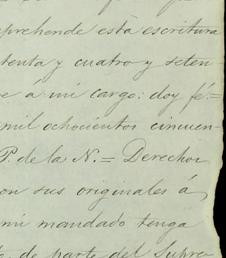 prehende esta escritura
tenta y cuatro y seten
á mi cargo: doy fé.=
mil ochocientos cincuen-
P. de la N.= Derechos
on sus originales á
mi mandado tenga
de parte del Supre